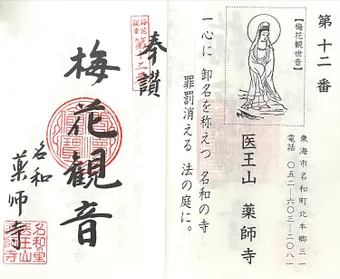 第十二番
【梅花観世音】
東海市名和町北本郷三一
電話 〇五二―六〇三―二〇八一
医王山 薬師寺
一心に 卸名を称えつ 名和の寺
罪罰消える 法の庭に。
奉讃
梅花観音
名和
薬師寺
名和の里
医王山
薬師寺